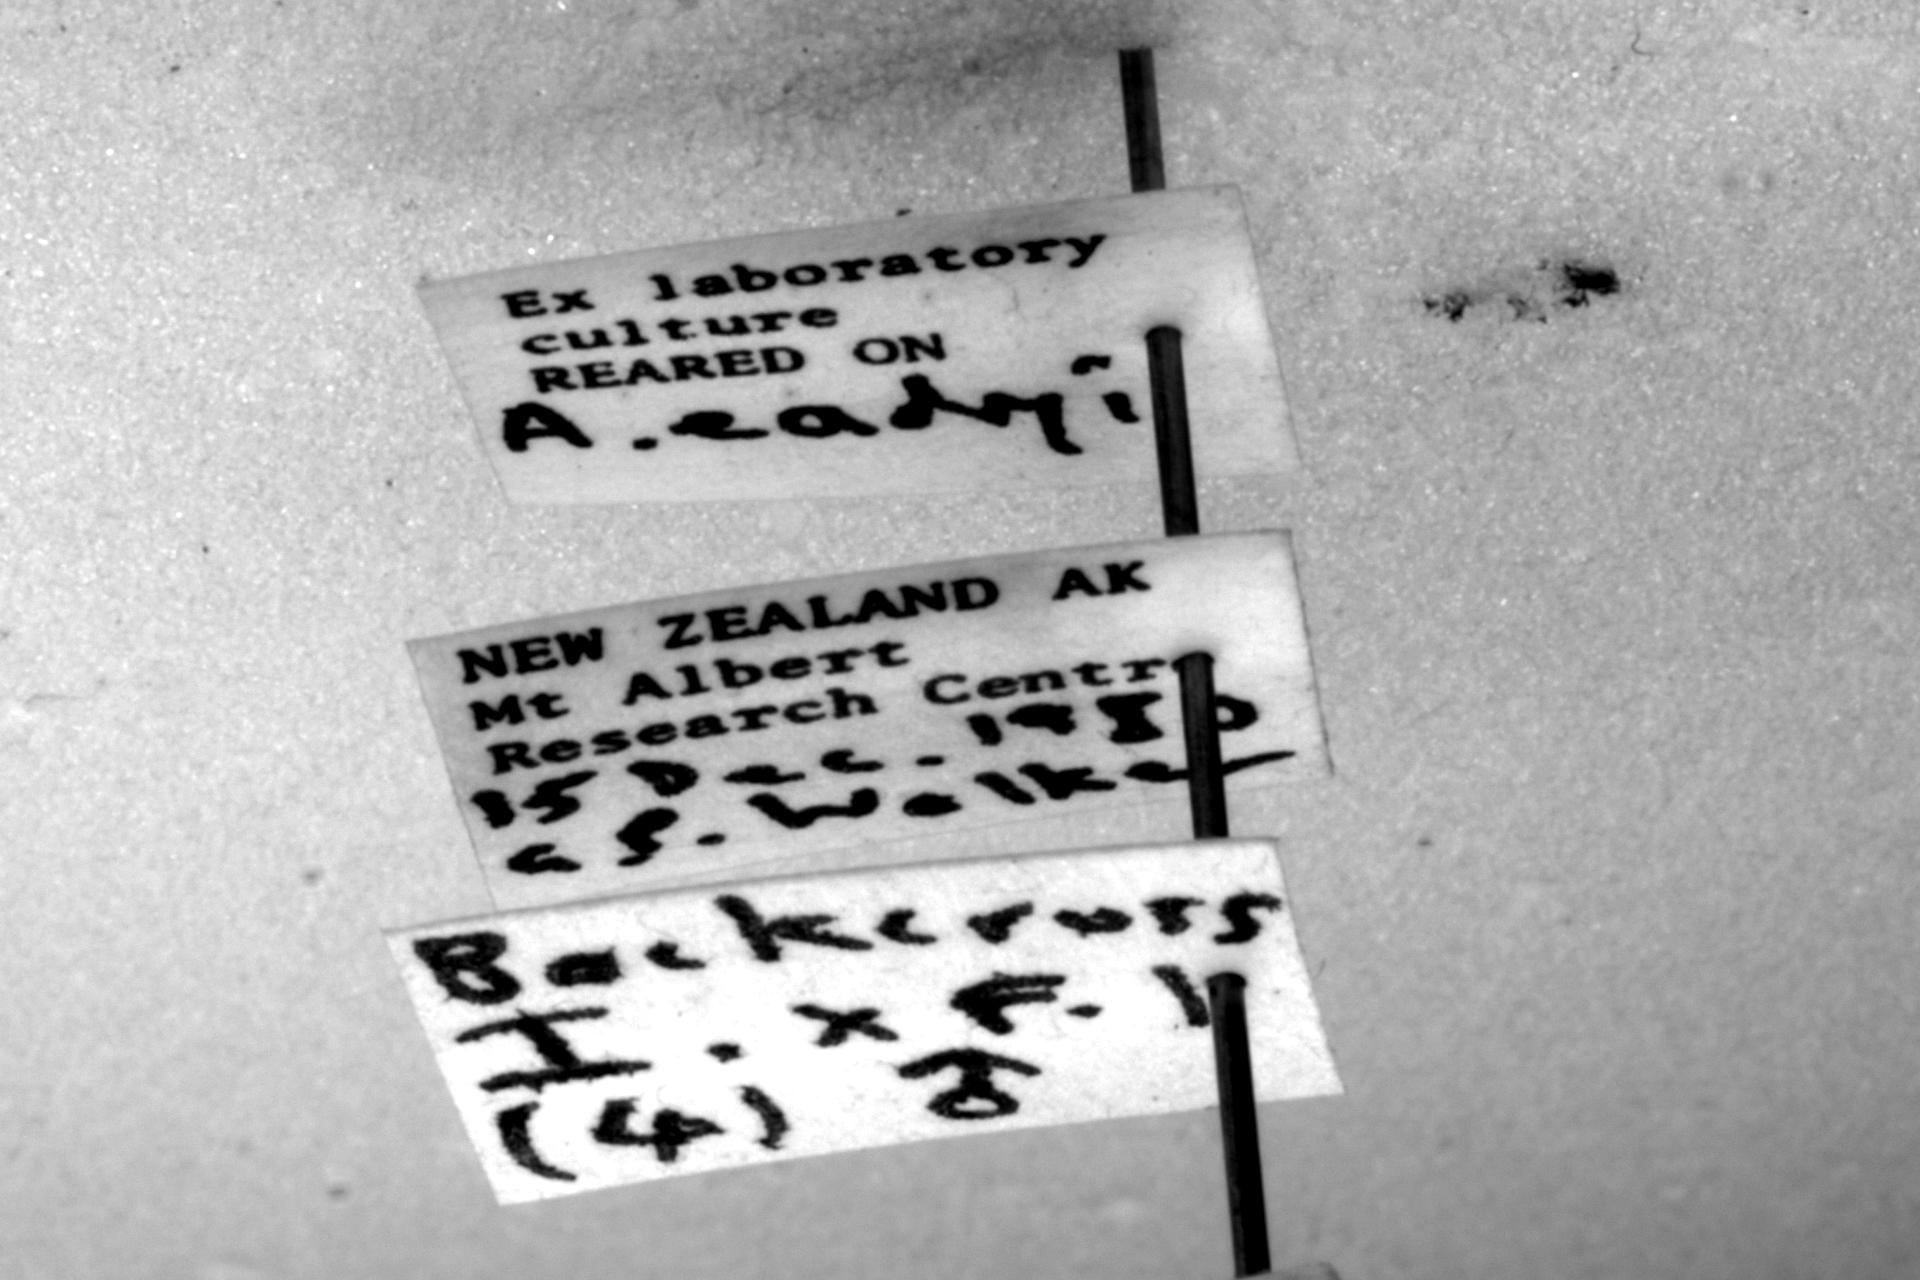 Ex laboratory
culture
REARED ON
A. eadyi
NEW ZEALAND AK
Mt Albert
Research Centre
15 Dec. 1980
G S. Walker
Backcross
I. x F. 1
(4) ♂